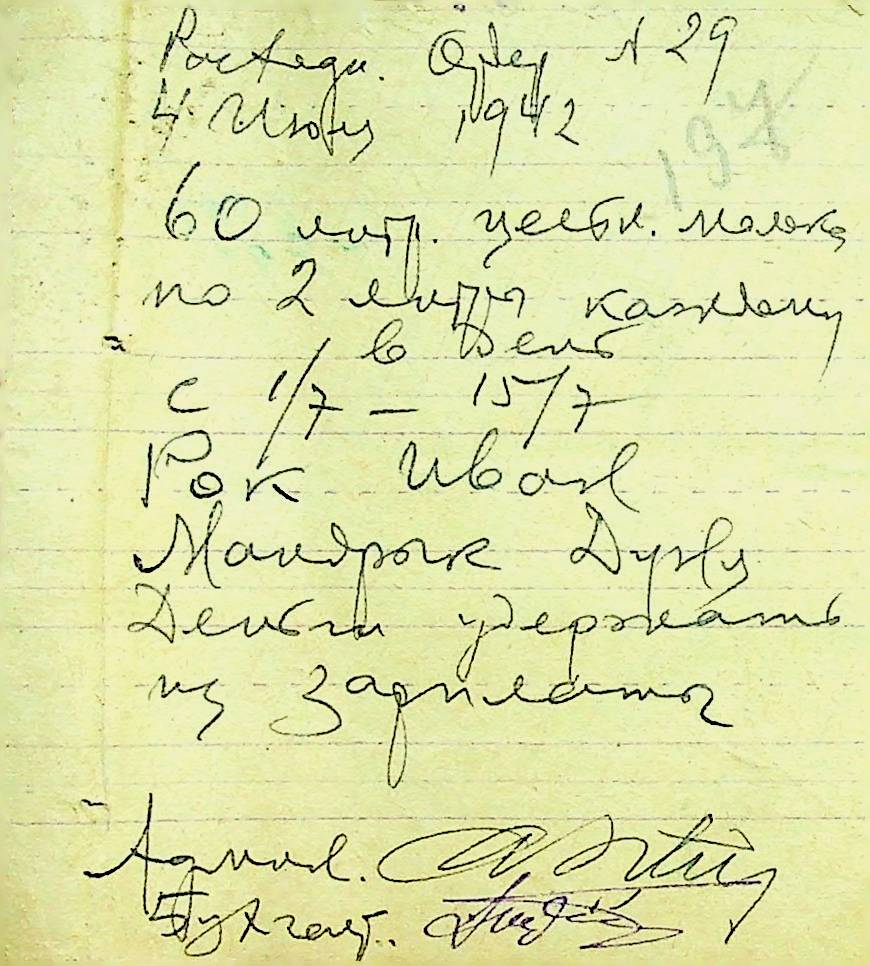 Расходн. Ордер N 29
4 Июля 1942
197
60 литр. цельн. молока
по 2 литры каждому
в День
с 1/7 — 15/7
Рок Иван
Мандрык Дуня
Деньги удержать
из Зарплаты
Админ.
Бухгалт.